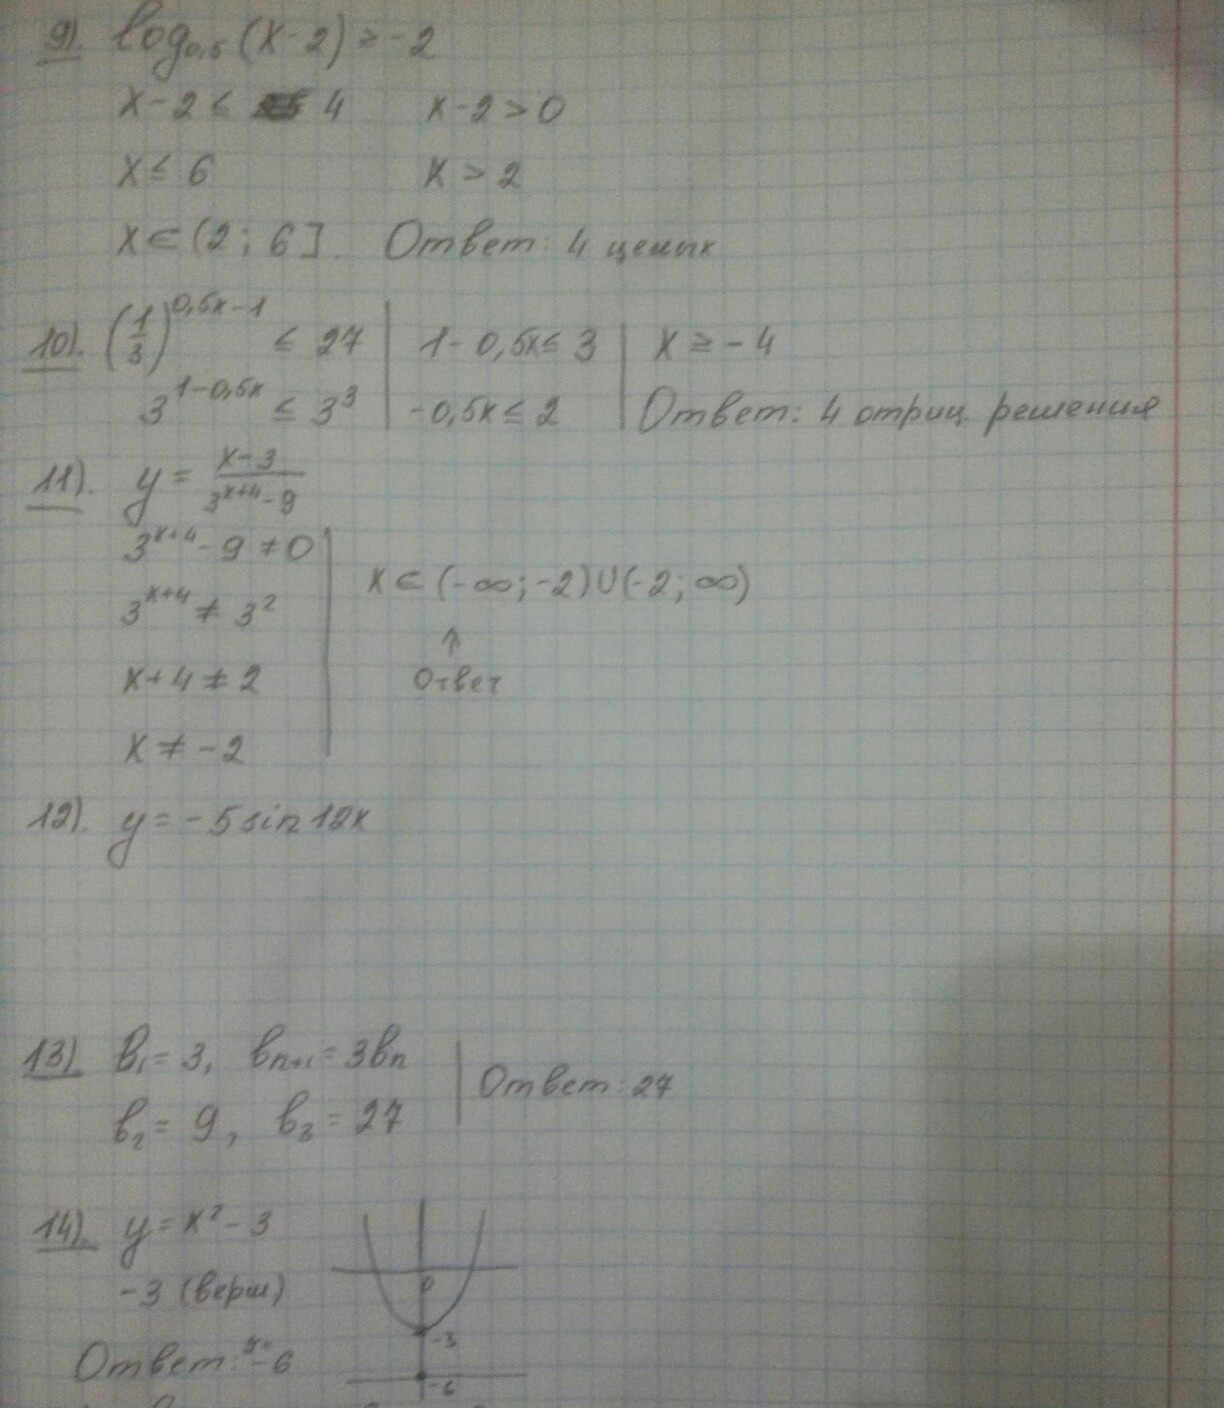 9). log₀,₅(x-2) ≥ -2
x-2 ≤ 4 x-2 > 0
x ≤ 6 x > 2
x ∈ (2; 6]. Ответ: 4 целых
10). (1/3)^(0,5x-1) ≤ 27 | 1-0,5x ≤ 3 | x ≥ -4
3^(1-0,5x) ≤ 3³ | -0,5x ≤ 2 | Ответ: 4 отриц. решения
11). y = (x-3)/(3^(x+4)-9)
3^(x+4) - 9 ≠ 0
x ∈ (-∞; -2)∪(-2; ∞)
3^(x+4) ≠ 3²
↑
x+4 ≠ 2
Ответ
x ≠ -2
12). y = -5sin12x
13) b₁ = 3, bₙ₊₁ = 3bₙ
Ответ: 27
b₂ = 9, b₃ = 27
14). y = x² - 3
0
-3 (верш)
-3
Ответ: -6
-6